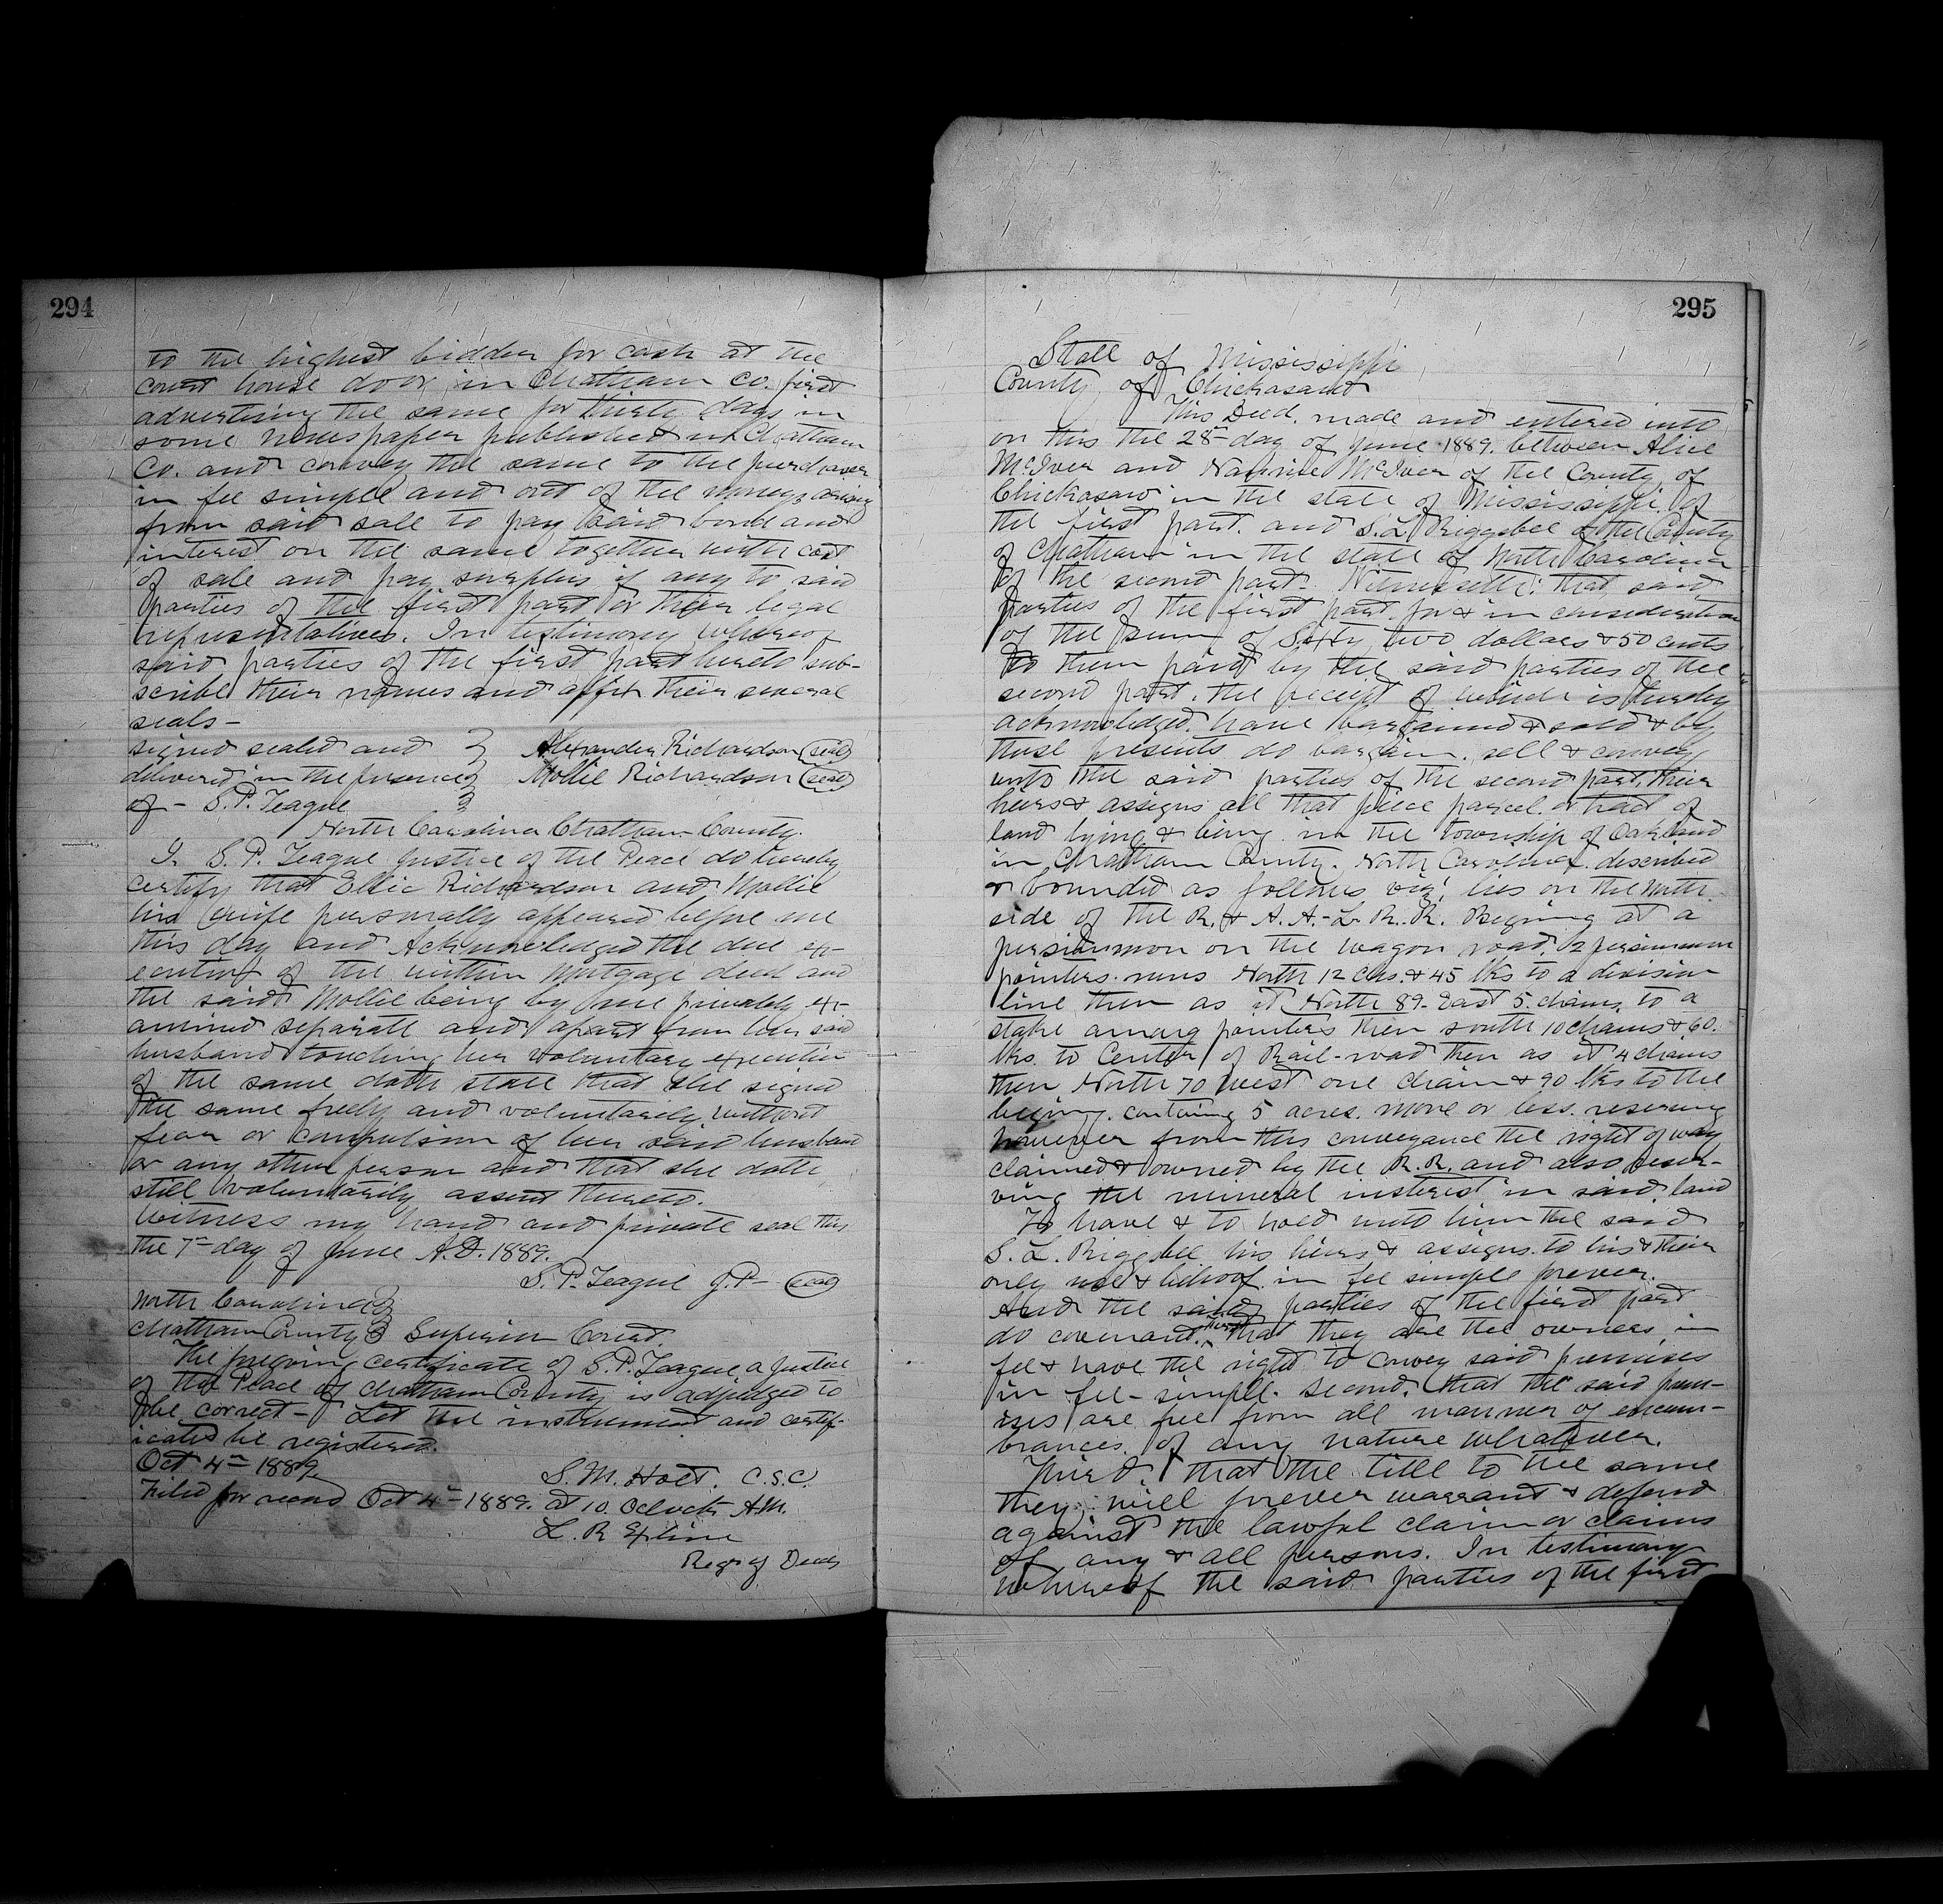 294
to the highest bidder for cash at the
court house door in Chatham Co. first
advertising the same for thirty days in
some newspaper published in Chatham
Co. and convey the same to the purchaser
in fee simple and out of the moneys arising
from said sale to pay said bond and
interest on the same together with cost
of sale and pay surplus if any to said
parties of the first part or their legal
representatives. In testimony whereof
said parties of the first part hereto sub-
scribe their names and affix their several
seals-
signed sealed and Alexander Richardson (seal)
delivered in the presence Mollie Richardson (seal)
of - S. P. Teague
North Carolina Chatham County.
I. S. P. Teague Justice of the Peace do hereby
certify that Ellic Richardson and Mollie
his wife personally appeared before me
this day and Acknowledged the due ex-
ecution of the within Mortgage deed and
the said Mollie being by me privately ex-
amined separate and apart from her said
husband touching her voluntary execution
of the same doth state that she signed
the same freely and voluntarily without
fear or compulsion of her said husband
or any other person and that she doth
still voluntarily assent thereto.
Witness my hand and private seal this
the 7th day of June A.D. 1889.
S. P. Teague J.P- (seal)
North Carolina
Chatham County Superior Court
The foregoing certificate of S. P. Teague a Justice
of the Peace of Chatham County is adjudged to
be correct - Let the instrument and certif-
icates be registered.
Oct 4th 1889.
S. M. Holt. C.S.C.
Filed for record Oct 4th 1889. at 10. Oclock A.M.
L. R. Exline
Regr of Deeds
295
State of Mississippi
County of Chickasaw
This Deed. made and entered into
on this the 28th day of June 1889. between Alice
McIver and Nannie McIver of the County of
Chickasaw in the state of Mississippi. of
the first part. and S. L. Riggsbee of the County
of Chatham in the state of North Carolina
of the second part. Witnesseth: that said
parties of the first part. for & in consideration
of the sum of Sixty two dollars & 50 cents
to them paid by the said parties of the
second part. the receipt of which is hereby
acknowledged. have bargained & sold & by
these presents do bargain. sell & convey
unto the said parties of the second part. their
heirs & assigns all that piece parcel. or tract of
land lying & being in the township of Oakland
in Chatham County. North Carolina. described
or bounded as follows viz; lies on the North.
side of the R. & A. A.-L. R. R. Begining at a
persimmon on the wagon road. 2 persimmon
pointers. runs North 12 chs. & 45 lks to a division
line then as it North 89- East 5. chains. to a
stake among pointers then south 10 chains & 60.
lks. to Center of Rail-road then as it 4 chains
then North 70 west one chain & 90 lks to the
begining. containing 5 acres. more or less. reserving
however from this conveyance the right of way
claimed & owned by the R. R. and also reser-
ving the mineral insterest in said. land
To have & to hold unto him the said
S. L. Riggsbee his heirs & assigns. to his & their
only use & behoof. in fee simple forever.
And the said parties of the first part
do covenant. first that they are the owners in
fee & have the right to convey said premises
in fee-simple. second. that the said prem-
ises are free from all manner of encum-
brances. of any nature whatever.
Third. that the title to the same
they. will forever warrant & defend
against the lawful claim or claims
of any & all persons. In testimony
whereof the said parties of the first